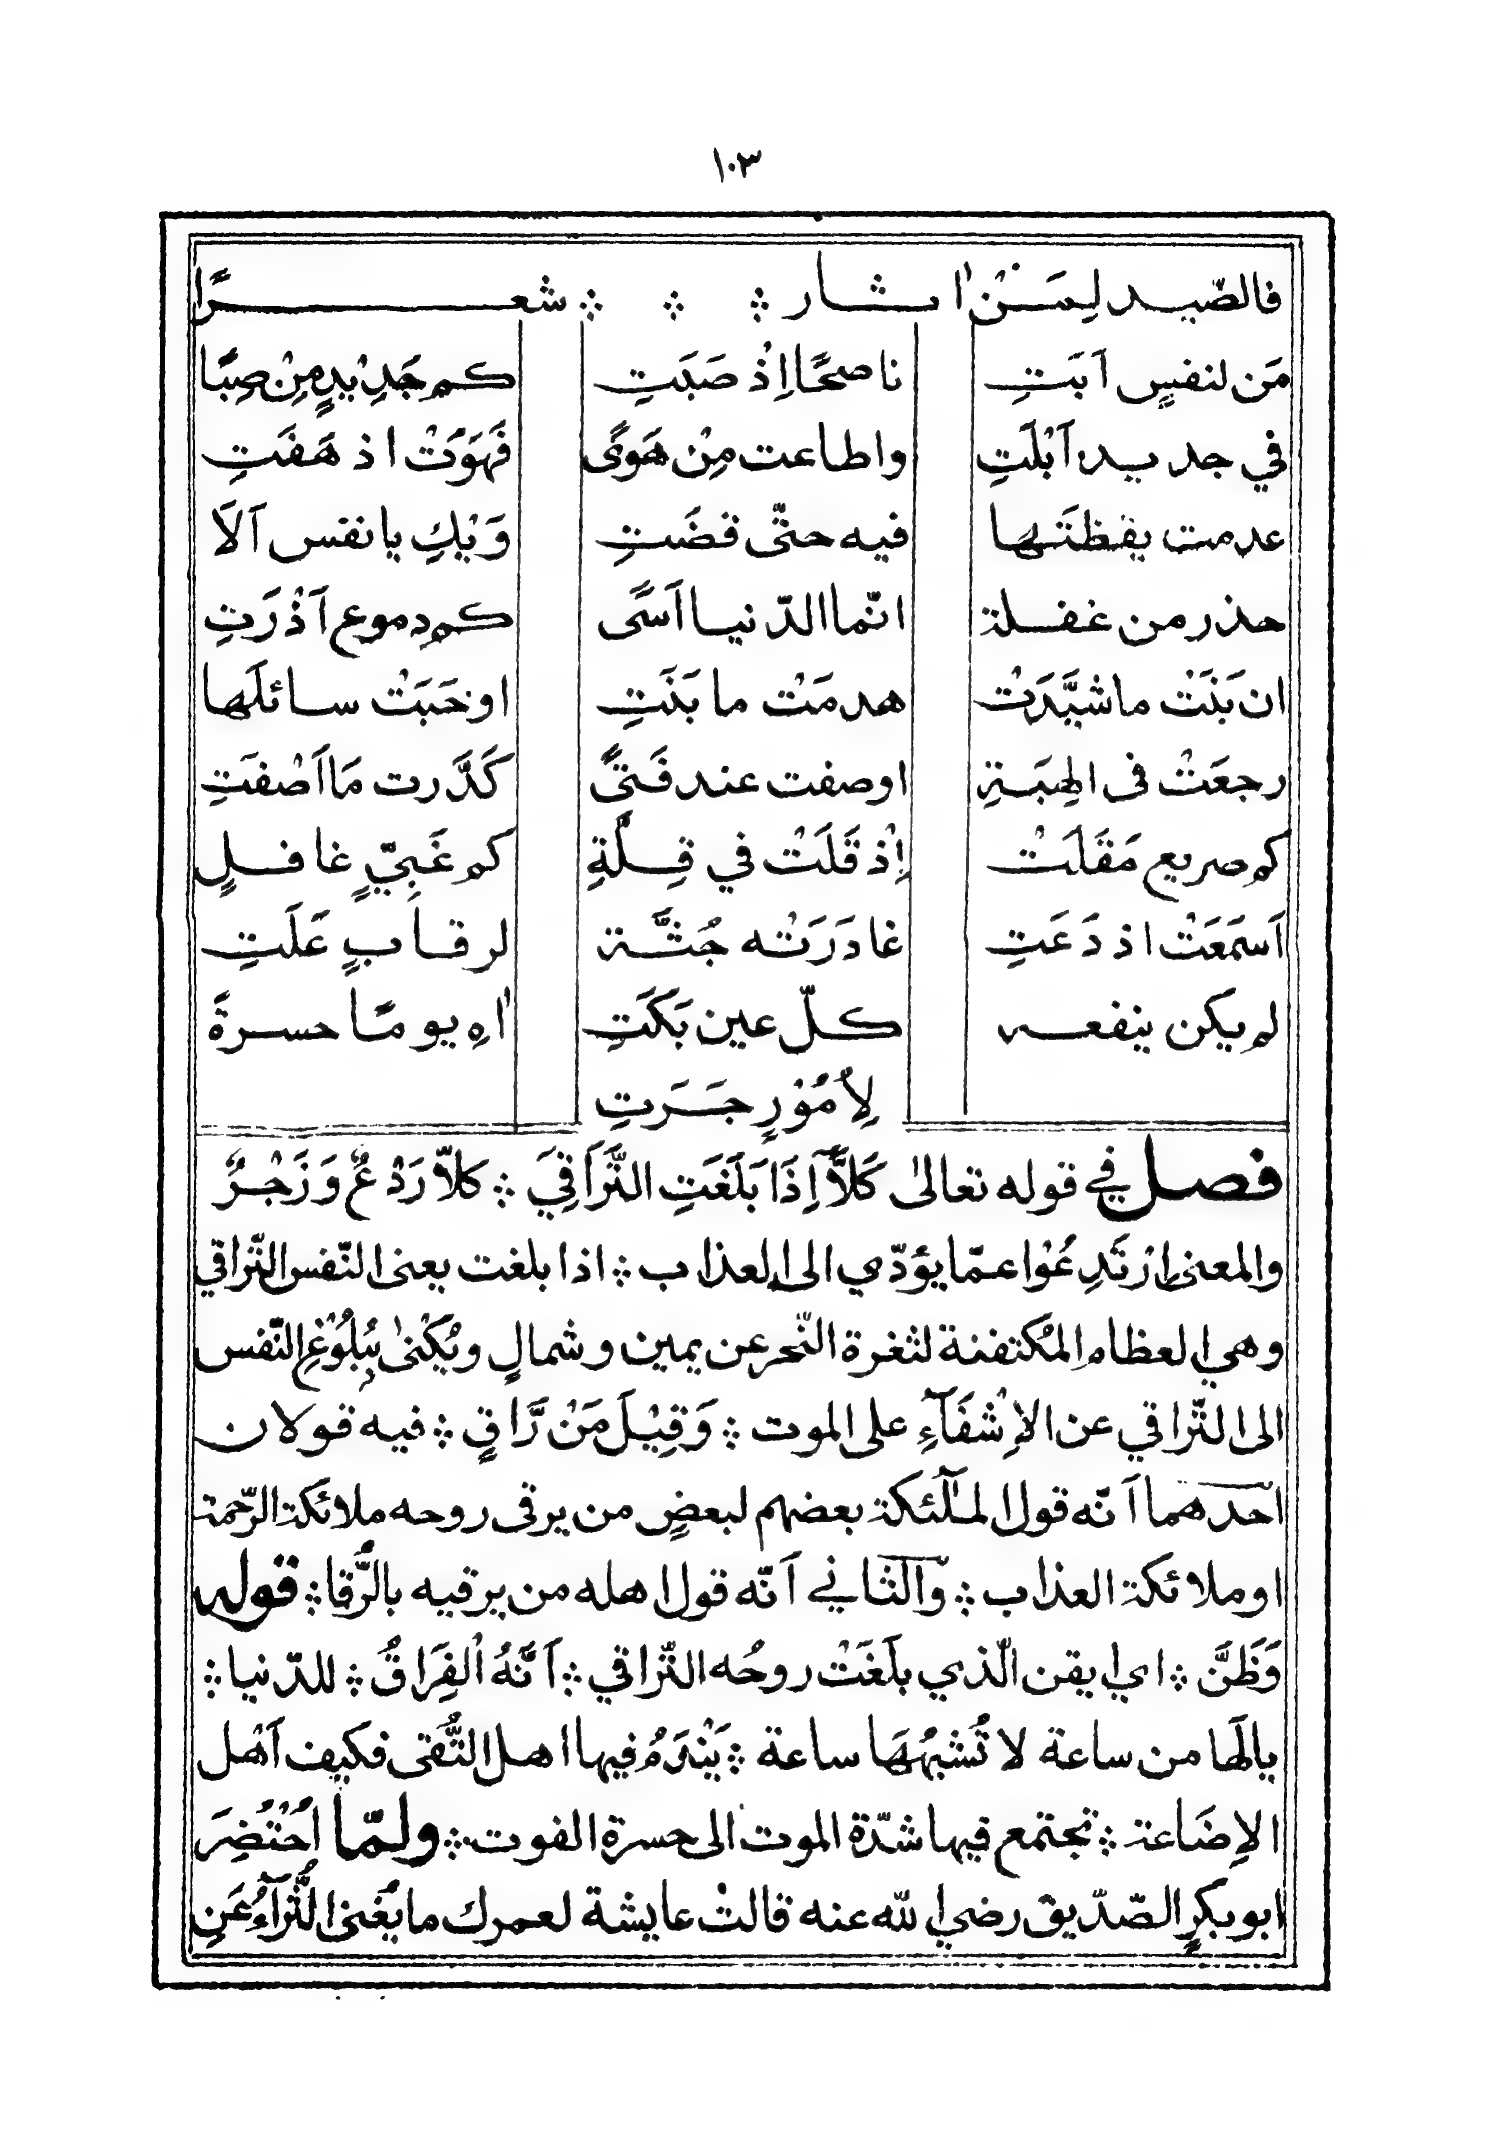 ١٠٣
فالصّيد لِمَنْ اٰثار ؞ ؞ ؞ شعرًا
مَن لنفسٍ اَبَتِ ناصحًا اِذْ صَبَتِ كم جَدِيْدٍ مِنْ صِبًا
في جديد اَبْلَتِ واطاعت مِنْ هَوًى فَهَوَتْ اذ هَفَتِ
عدمت يقظتَها فيه حتّى قضَتِ وَيْكِ يا نفس اَلَا
حذر من غفلة انّما الدّنيا اَسًى كم دموع اَذْرَتِ
ان بَنَتْ ما شيَّدَتْ هدمَتْ ما بَنَتِ او حَبَتْ سائلَها
رجعَتْ فى الهِبَةِ او صفت عند فَتًى كَدَّرت مَا اَصْفَتِ
كم صريع مَقَلَتْ اِذْ قَلَتْ في قِلَّةٍ كم غَبِيٍّ غافلٍ
اَسمَعَتْ اذ دَعَتِ غادَرَتْه جُثَّة لرقابٍ عَلَتِ
لم يكن ينفعه كلّ عين بَكَتِ اٰهِ يومًا حسرةً
لِاُمُوْرٍ جَرَتِ
فصل في قوله تعالىٰ كَلَّآ اِذَا بَلَغَتِ التَّرَاقِيَ ؞ كلّا رَدْعٌ وَزَجْرٌ
والمعنى اِرْتَدِعُوْا عمّا يؤدّي الى العذاب ؞ اذا بلغت يعنى النّفس التّراقي
وهي العظام المُكتفنة لثغرة النّحر عن يمين وشمالٍ ويُكْنىٰ بِبُلُوْغِ النّفس
الى التّراقي عن الاِشْفَآءِ على الموت ؞ وَقِيْلَ مَنْ رَّاقٍ ؞ فيه قولان
احدهما اَنّه قول الملٰٓئكة بعضهم لبعضٍ من يرقى روحه ملائكة الرّحمة
او ملائكة العذاب ؞ والثاني اَنّه قول اهله من يرقيه بالرُّقا ؞ قوله
وَظَنَّ ؞ اي ايقن الّذي بلَغَتْ روحُه التّراقي ؞ اَنَّهُ الْفِرَاقُ ؞ للدّنيا ؞
يا لَها من ساعة لا تُشْبِهُهَا ساعة ؞ يَنْدَمُ فيها اهل التُّقى فكيف اَهْل
الاِضَاعة ؞ تجتمع فيها شدّة الموت الى حسرة الفوت ؞ ولمّا اُحْتُضِرَ
ابو بكرٍ الصّدّيق رضي الله عنه قالتْ عايشة لعمرك ما يُغنى الثَّرَآءُ عَنِ